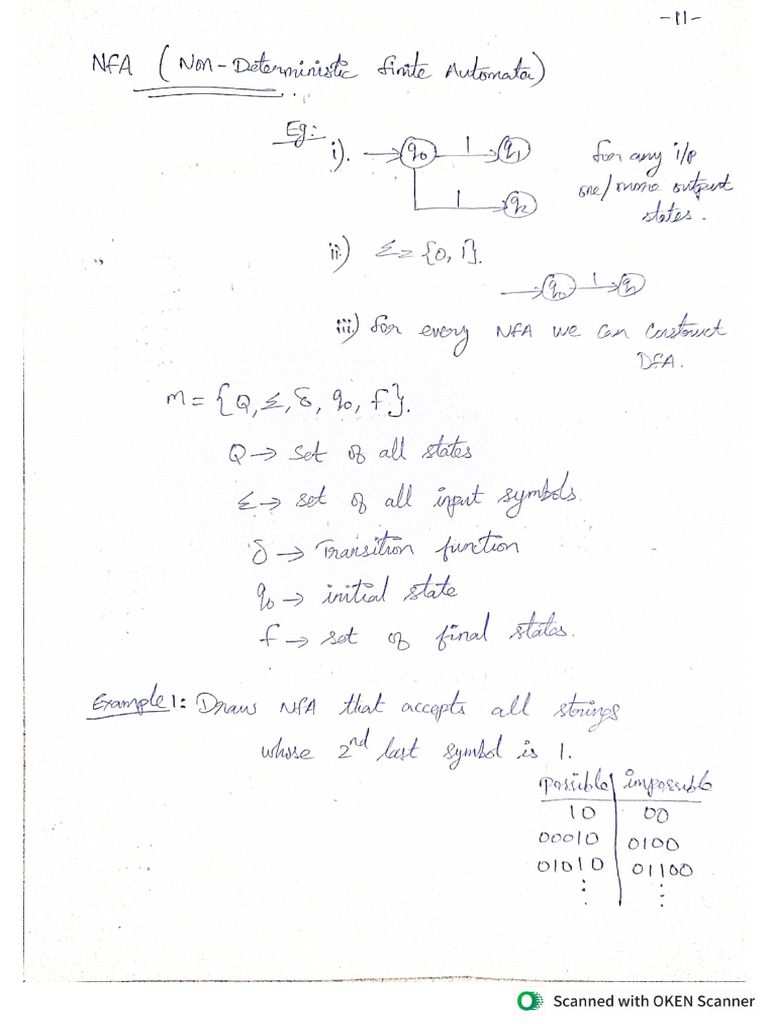 -11-
NFA (Non-Deterministic finite Automata)
Eg:
i). q0 1 q1 for any i/p
1 q2 one/more output
states.
ii) Σ = {0, 1}.
q0 1 q1
iii) for every NFA we can construct
DFA.
M = {Q, Σ, δ, q0, f}.
Q → set of all states
Σ → set of all input symbols.
δ → Transition function
q0 → initial state
f → set of final states.
Example 1: Draw NFA that accepts all strings
whose 2nd last symbol is 1.
possible impossible
10 00
00010 0100
01010 01100
⋮ ⋮
Scanned with OKEN Scanner